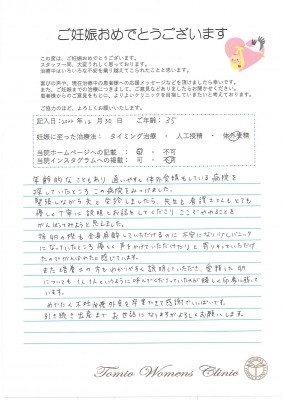 ご妊娠おめでとうございます
この度は、ご妊娠おめでとうございます。
スタッフ一同、大変うれしく思っております。
治療中はいろいろな不安を乗り越えてこられたことと思います。
喜びの声や、現在治療中の患者様への応援メッセージなどを頂けましたら幸いです。
また、ご妊娠までの治療につきまして、ご意見などありましたらお聞かせください。
患者様からのご意見をもとに、よりよいクリニックを目指していきたいと考えております。
ご協力のほど、よろしくお願いいたします。
記入日：2020年12月30日 ご年齢：35
妊娠に至った治療法： タイミング治療 ・ 人工授精 ・ 体外受精
当院ホームページへの記載： 可 ・ 不可
当院インスタグラムへの掲載： 可 ・ 不可
年齢的なこともあり 通いやすく体外受精もしている病院を
探していたところ この病院をみつけました。
緊張しながら夫と受診しましたら、先生も看護士さんもとても
優しく丁寧に説明とお話をしてくださり ここでやめることを
がんばってみようと思えました。
採卵の際も全身麻酔としていただけるのに不安になり
になっていたところ 優しく声をかけていただけたり と
たのでがんばれたと感じています。
また培養士の方もわかりやすく説明していただき、受精した卵
についても「1人」というように呼んでくださっていたのが嬉しく印象に残って
います。
めでたく不妊治療外来を卒業できて感謝でいっぱいです。
引き続き出産までお世話になりますがよろしくお願いします。
Tomio Womens Clinic